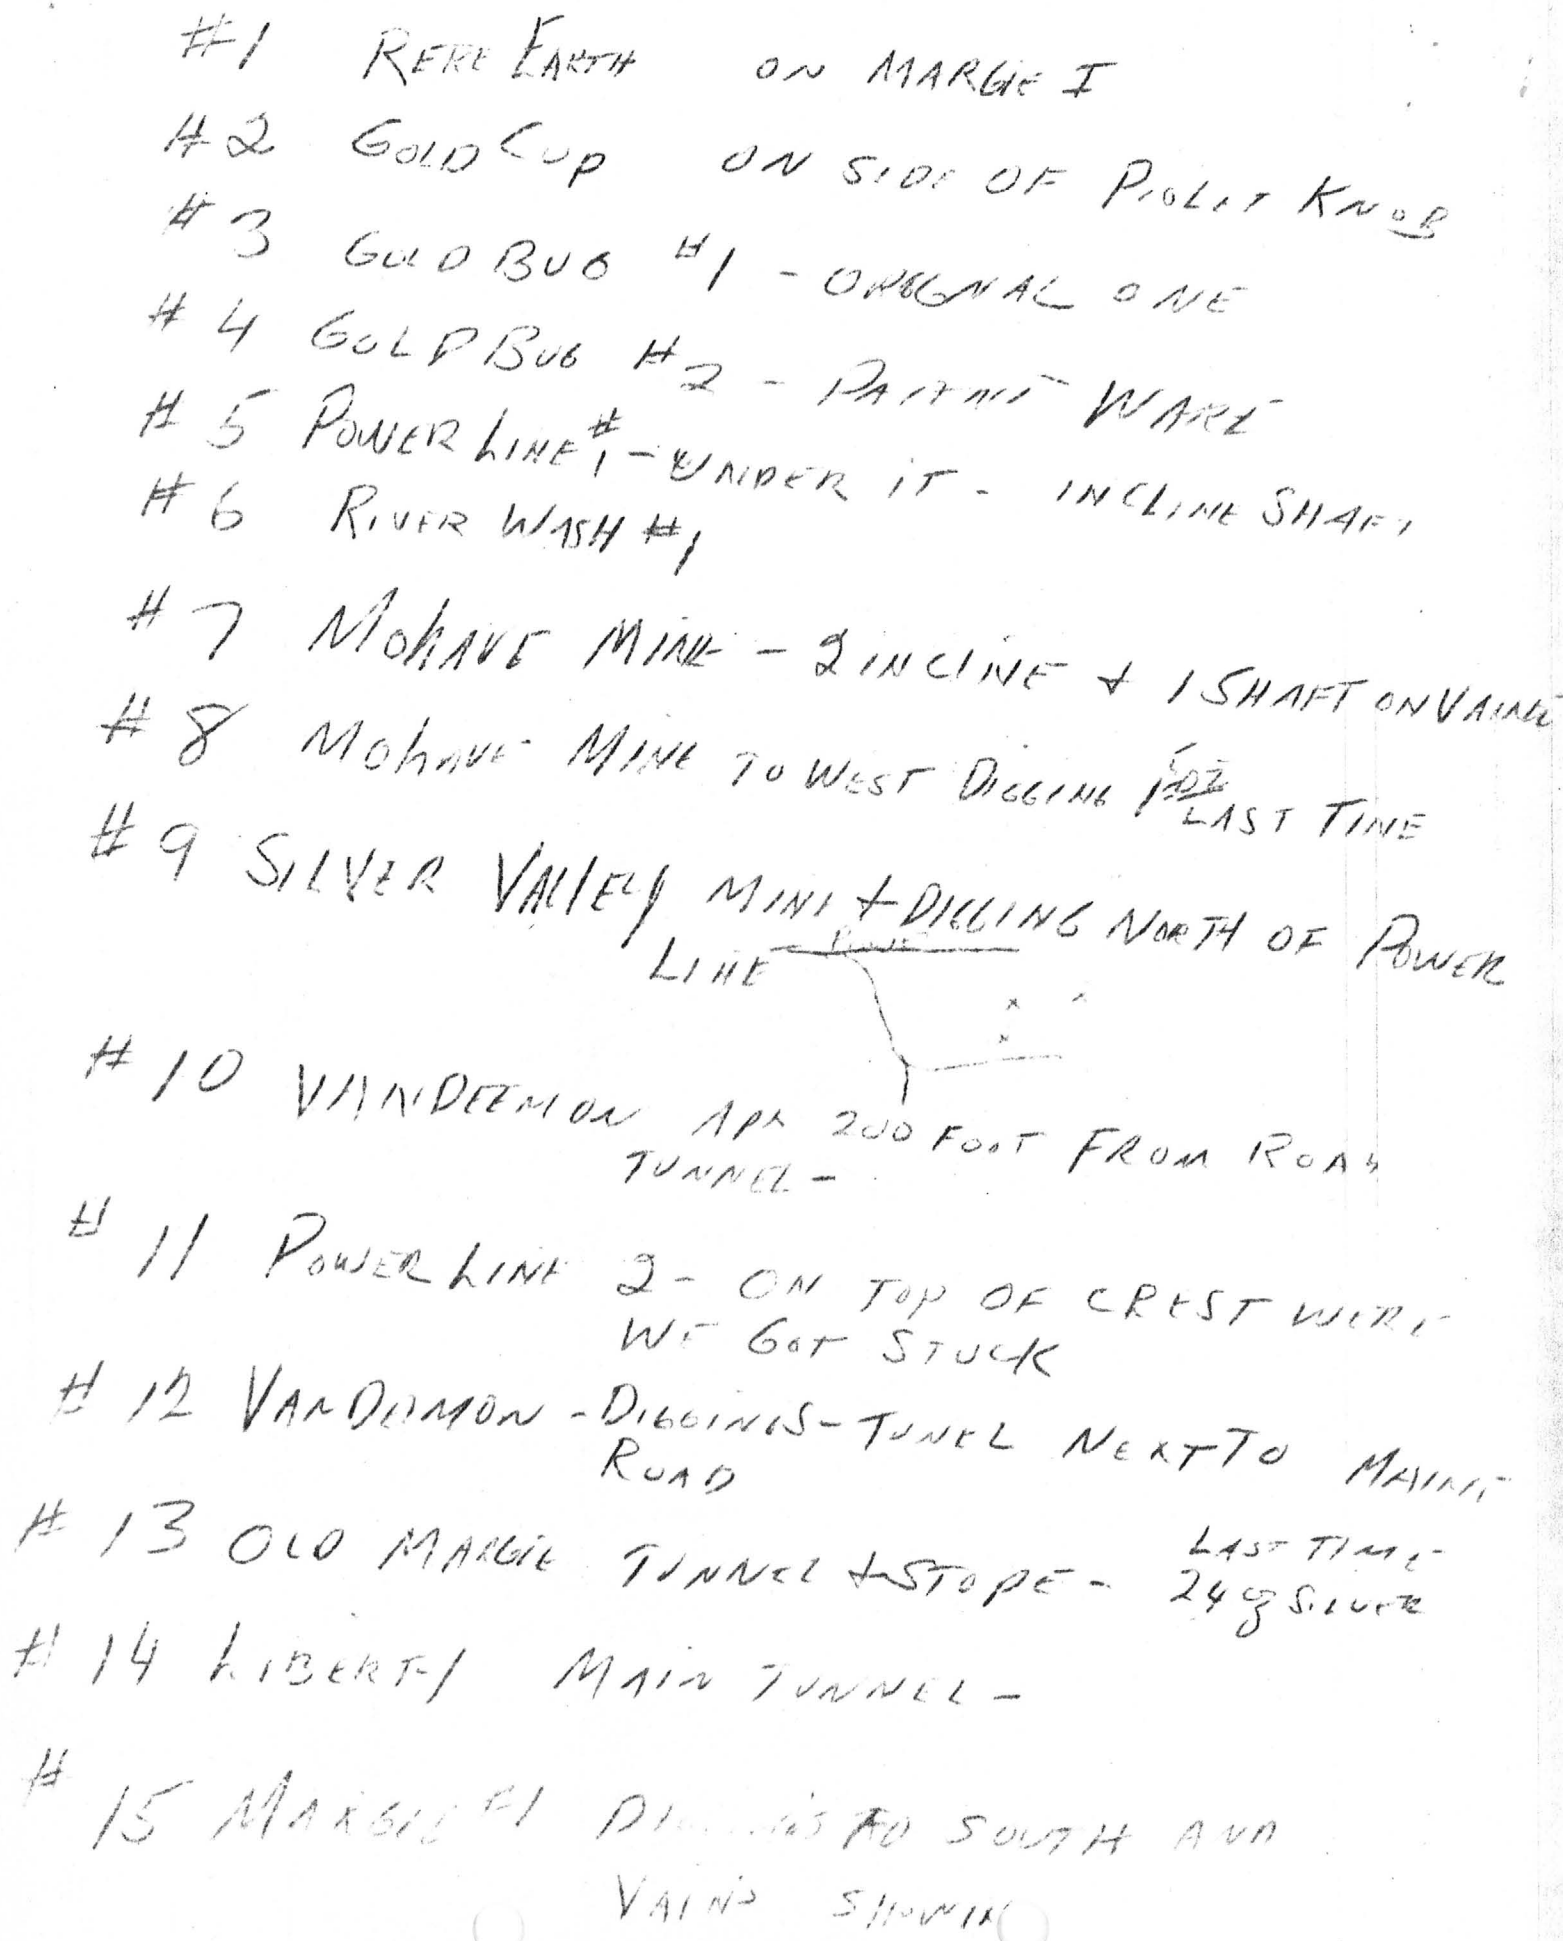 #1 RERE EARTH ON MARGIE I
#2 GOLD CUP ON SIDE OF PIOLIT KNOB
#3 GOLD BUG #1 - ORIGNAL ONE
#4 GOLD BUG #2 - PATENT WARE
#5 POWER LINE #1 - UNDER IT - INCLINE SHAFT
#6 RIVER WASH #1
#7 MOHAVE MINE - 2 INCLINE + 1 SHAFT ON VAINE
#8 MOHAVE MINE TO WEST DIGGING
LAST TINE
#9 SILVER VALLEY MINE + DIGGING NORTH OF POWER
LINE
#10 VANDEEMON APX 200 FOOT FROM ROAD
TUNNEL -
#11 POWER LINE 2 - ON TOP OF CREST WERE
WE GOT STUCK
#12 VANDEMON - DIGGINGS - TUNEL NEXT TO MAINE
ROAD
#13 OLD MARGIE TUNNEL + STOPE - LAST TIME
24 oz SILVER
#14 LIBERTY MAIN TUNNEL -
#15 MARGIE #1 TO SOUTH AND
VAINS SHOWIN